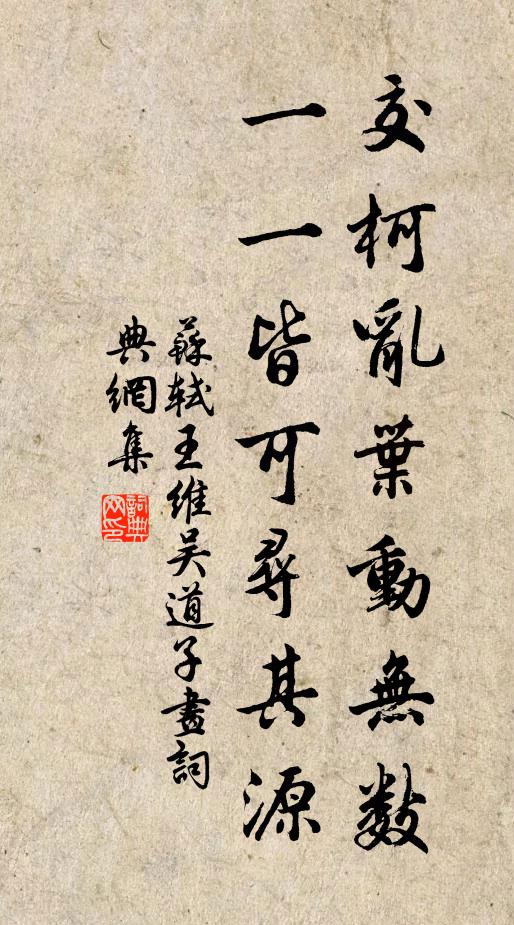 交柯亂葉動無數
一一皆可尋其源
蘇軾王維吴道子畫詞
典網集
詞典网印